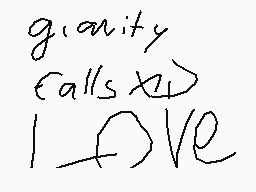 gravity
falls XD
LOVE